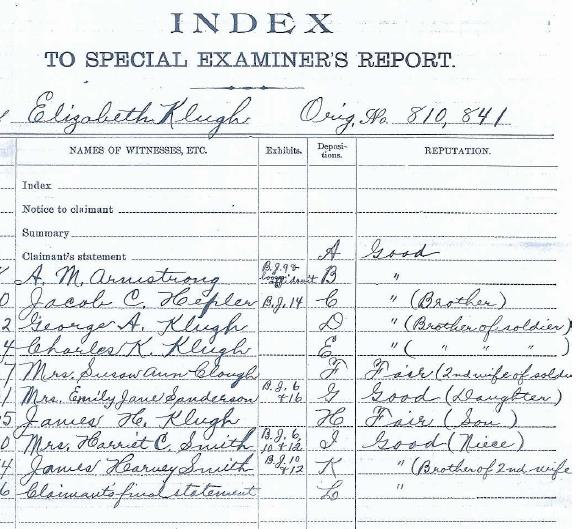 INDEX
TO SPECIAL EXAMINER'S REPORT.
Elizabeth Klugh Orig. No. 810,841
NAMES OF WITNESSES, ETC. Exhibits. Deposi-tions. REPUTATION.
Index
Notice to claimant
Summary
Claimant's statement A Good
A. M. Armstrong B.J. 9 & B "
0 Jacob C. Hepler B.J. 14 C " (Brother)
2 George A. Klugh D " (Brother of soldier)
4 Charles K. Klugh E " ( " " " )
7 Mrs. Susan Ann Clough F Fair (2nd wife of soldi
1 Mrs. Emily Jane Sanderson B.J. 6 + 16 G Good (Daughter)
5 James H. Klugh H Fair (Son)
0 Mrs. Harriet C. Smith B.J. 6, 10 + 12 I Good (Niece)
4 James Harvey Smith B.J. 10 + 12 K " (Brother of 2nd wife
6 Claimant's final statement L "